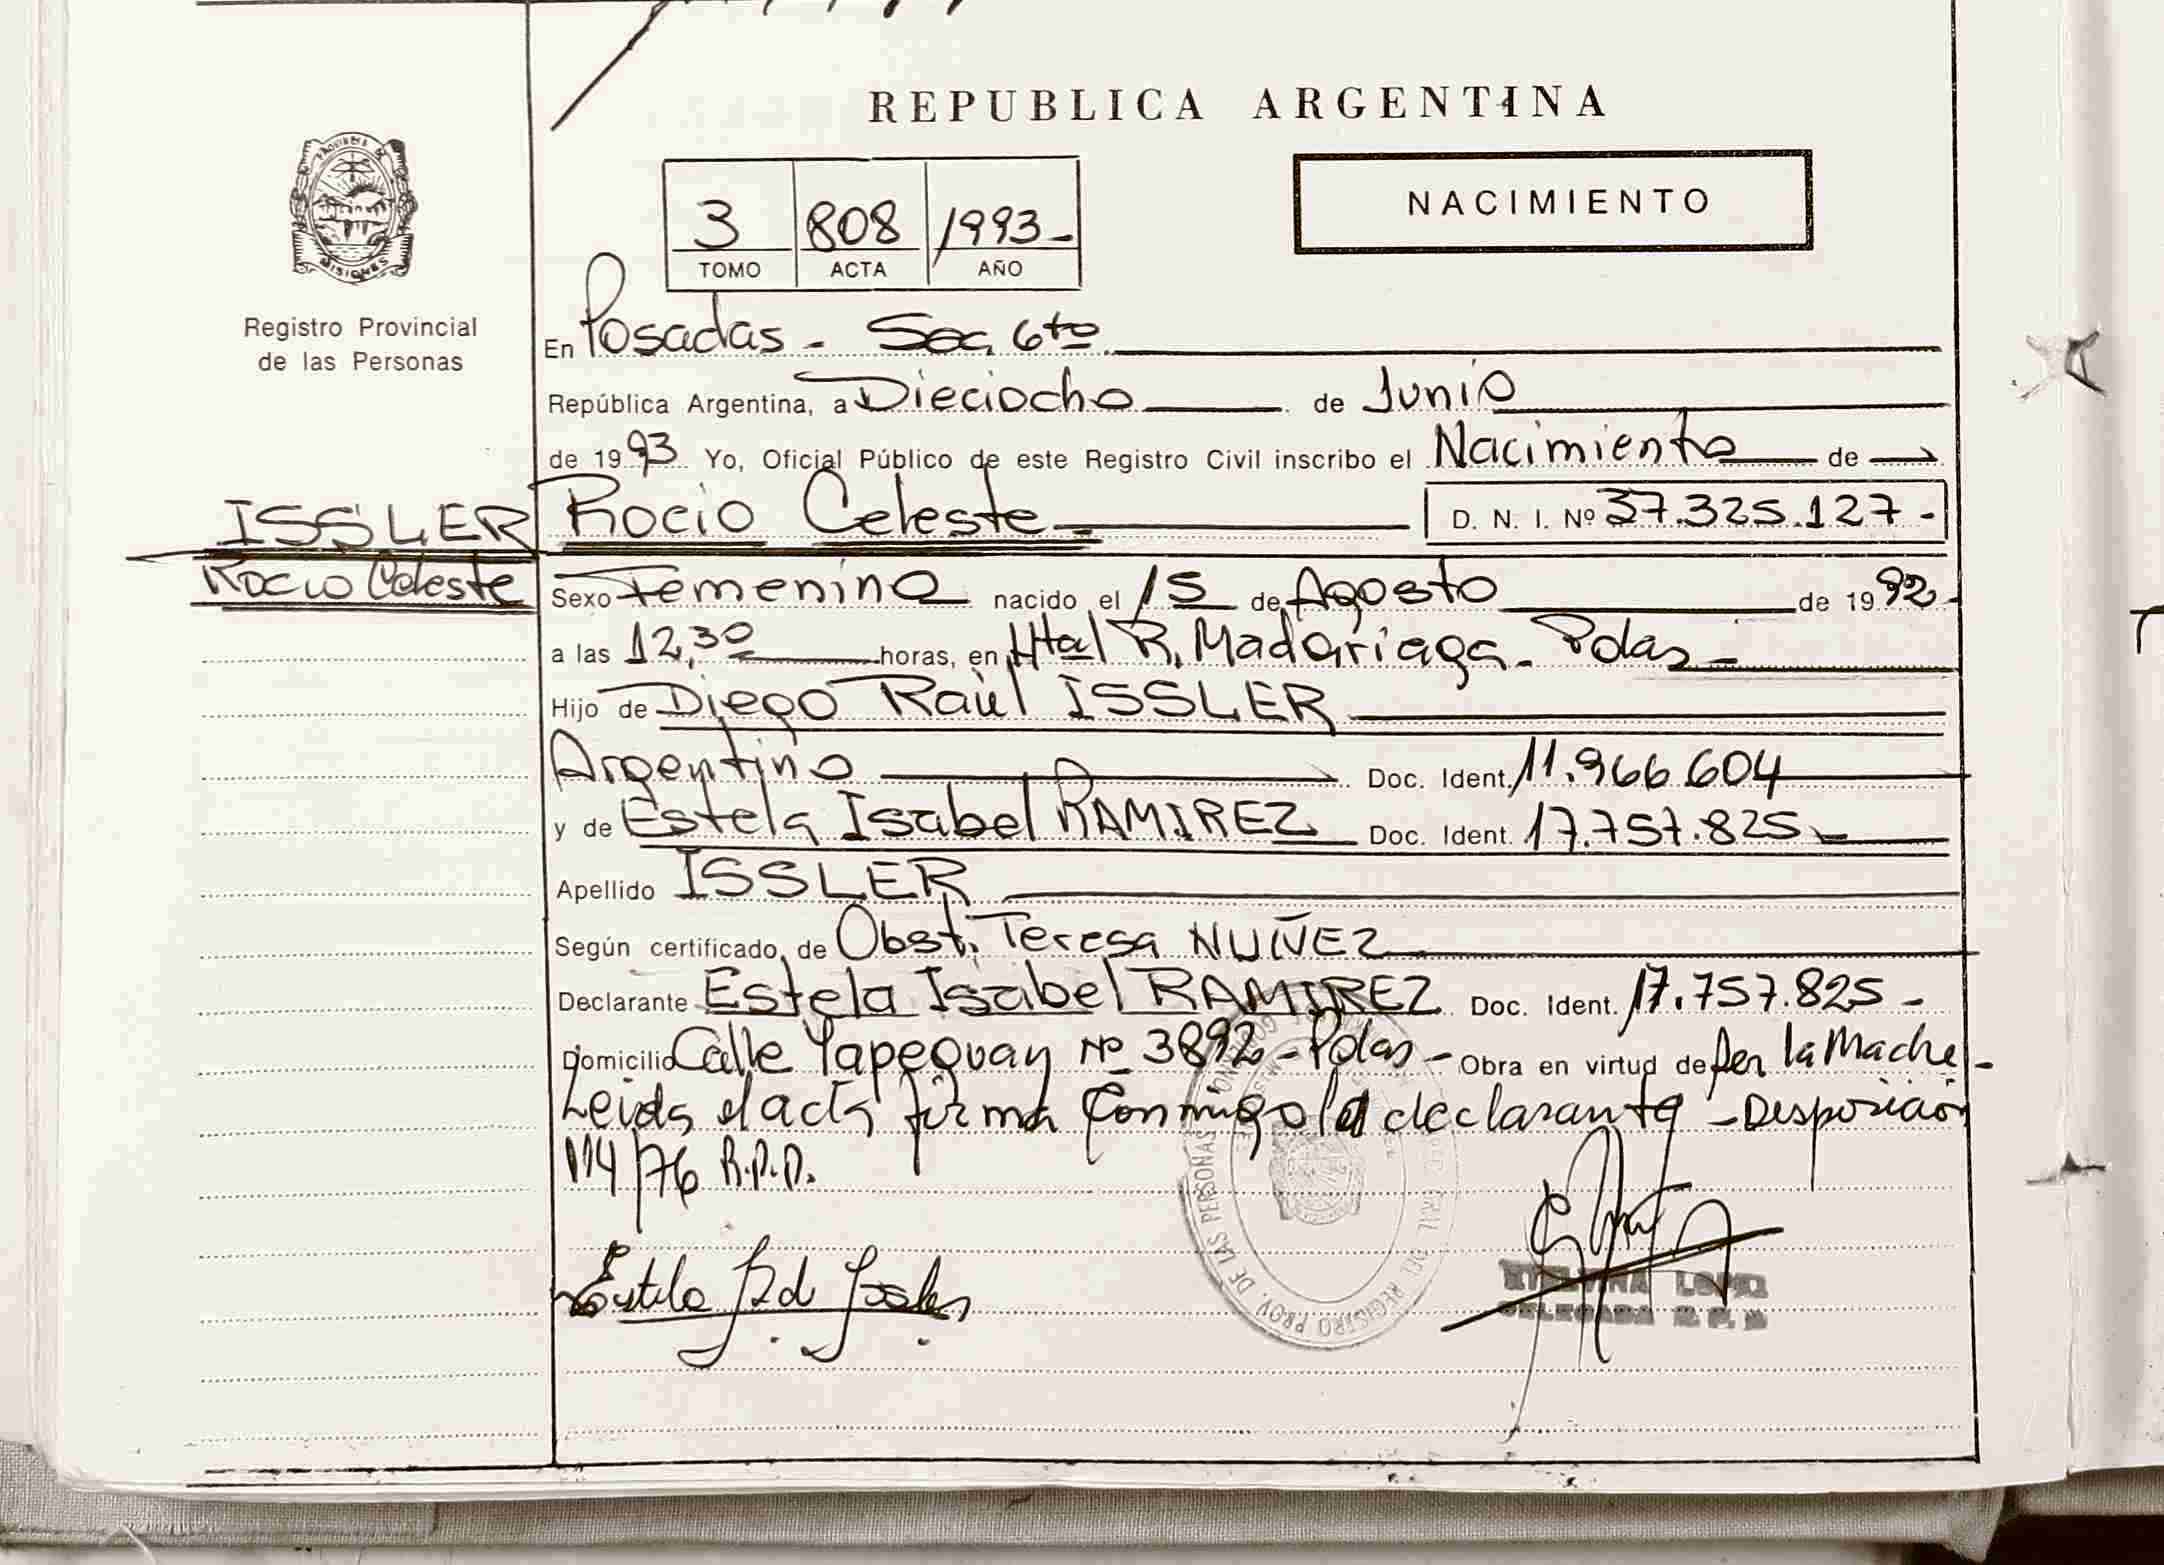 REPUBLICA ARGENTINA
PROVINCIA DE
MISIONES
Registro Provincial
de las Personas
3 808 1993-
TOMO ACTA AÑO
NACIMIENTO
En Posadas - Sec 6ta
República Argentina, a Dieciocho de Junio
de 1993 Yo, Oficial Público de este Registro Civil inscribo el Nacimiento de
ISSLER Rocio Celeste D. N. I. Nº 37.325.127-
Rocio Celeste
Sexo Femenino nacido el 15 de Agosto de 1992-
a las 12,30 horas, en Htal R. Madariaga - Pdas -
Hijo de Diego Raúl ISSLER
Argentino Doc. Ident. 11.966.604
y de Estela Isabel RAMIREZ Doc. Ident. 17.757.825-
Apellido ISSLER
Según certificado de Obst. Teresa NUÑEZ
Declarante Estela Isabel RAMIREZ Doc. Ident. 17.757.825-
Domicilio Calle Yapeguay Nº 3892 - Pdas - Obra en virtud de ser la Madre -
Leida el acta firma conmigo la declarante - Disposición
114/76 R.P.P.
Estela I. d Issler
LOPEZ
DELEGADA R.P.P
REGISTRO PROV. DE LAS PERSONAS